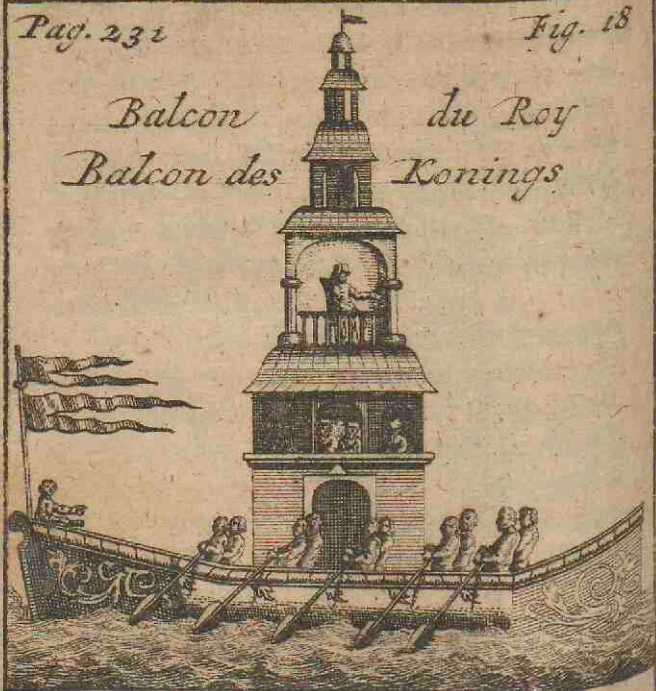 Pag. 231 Fig. 18
Balcon du Roy
Balcon des Konings